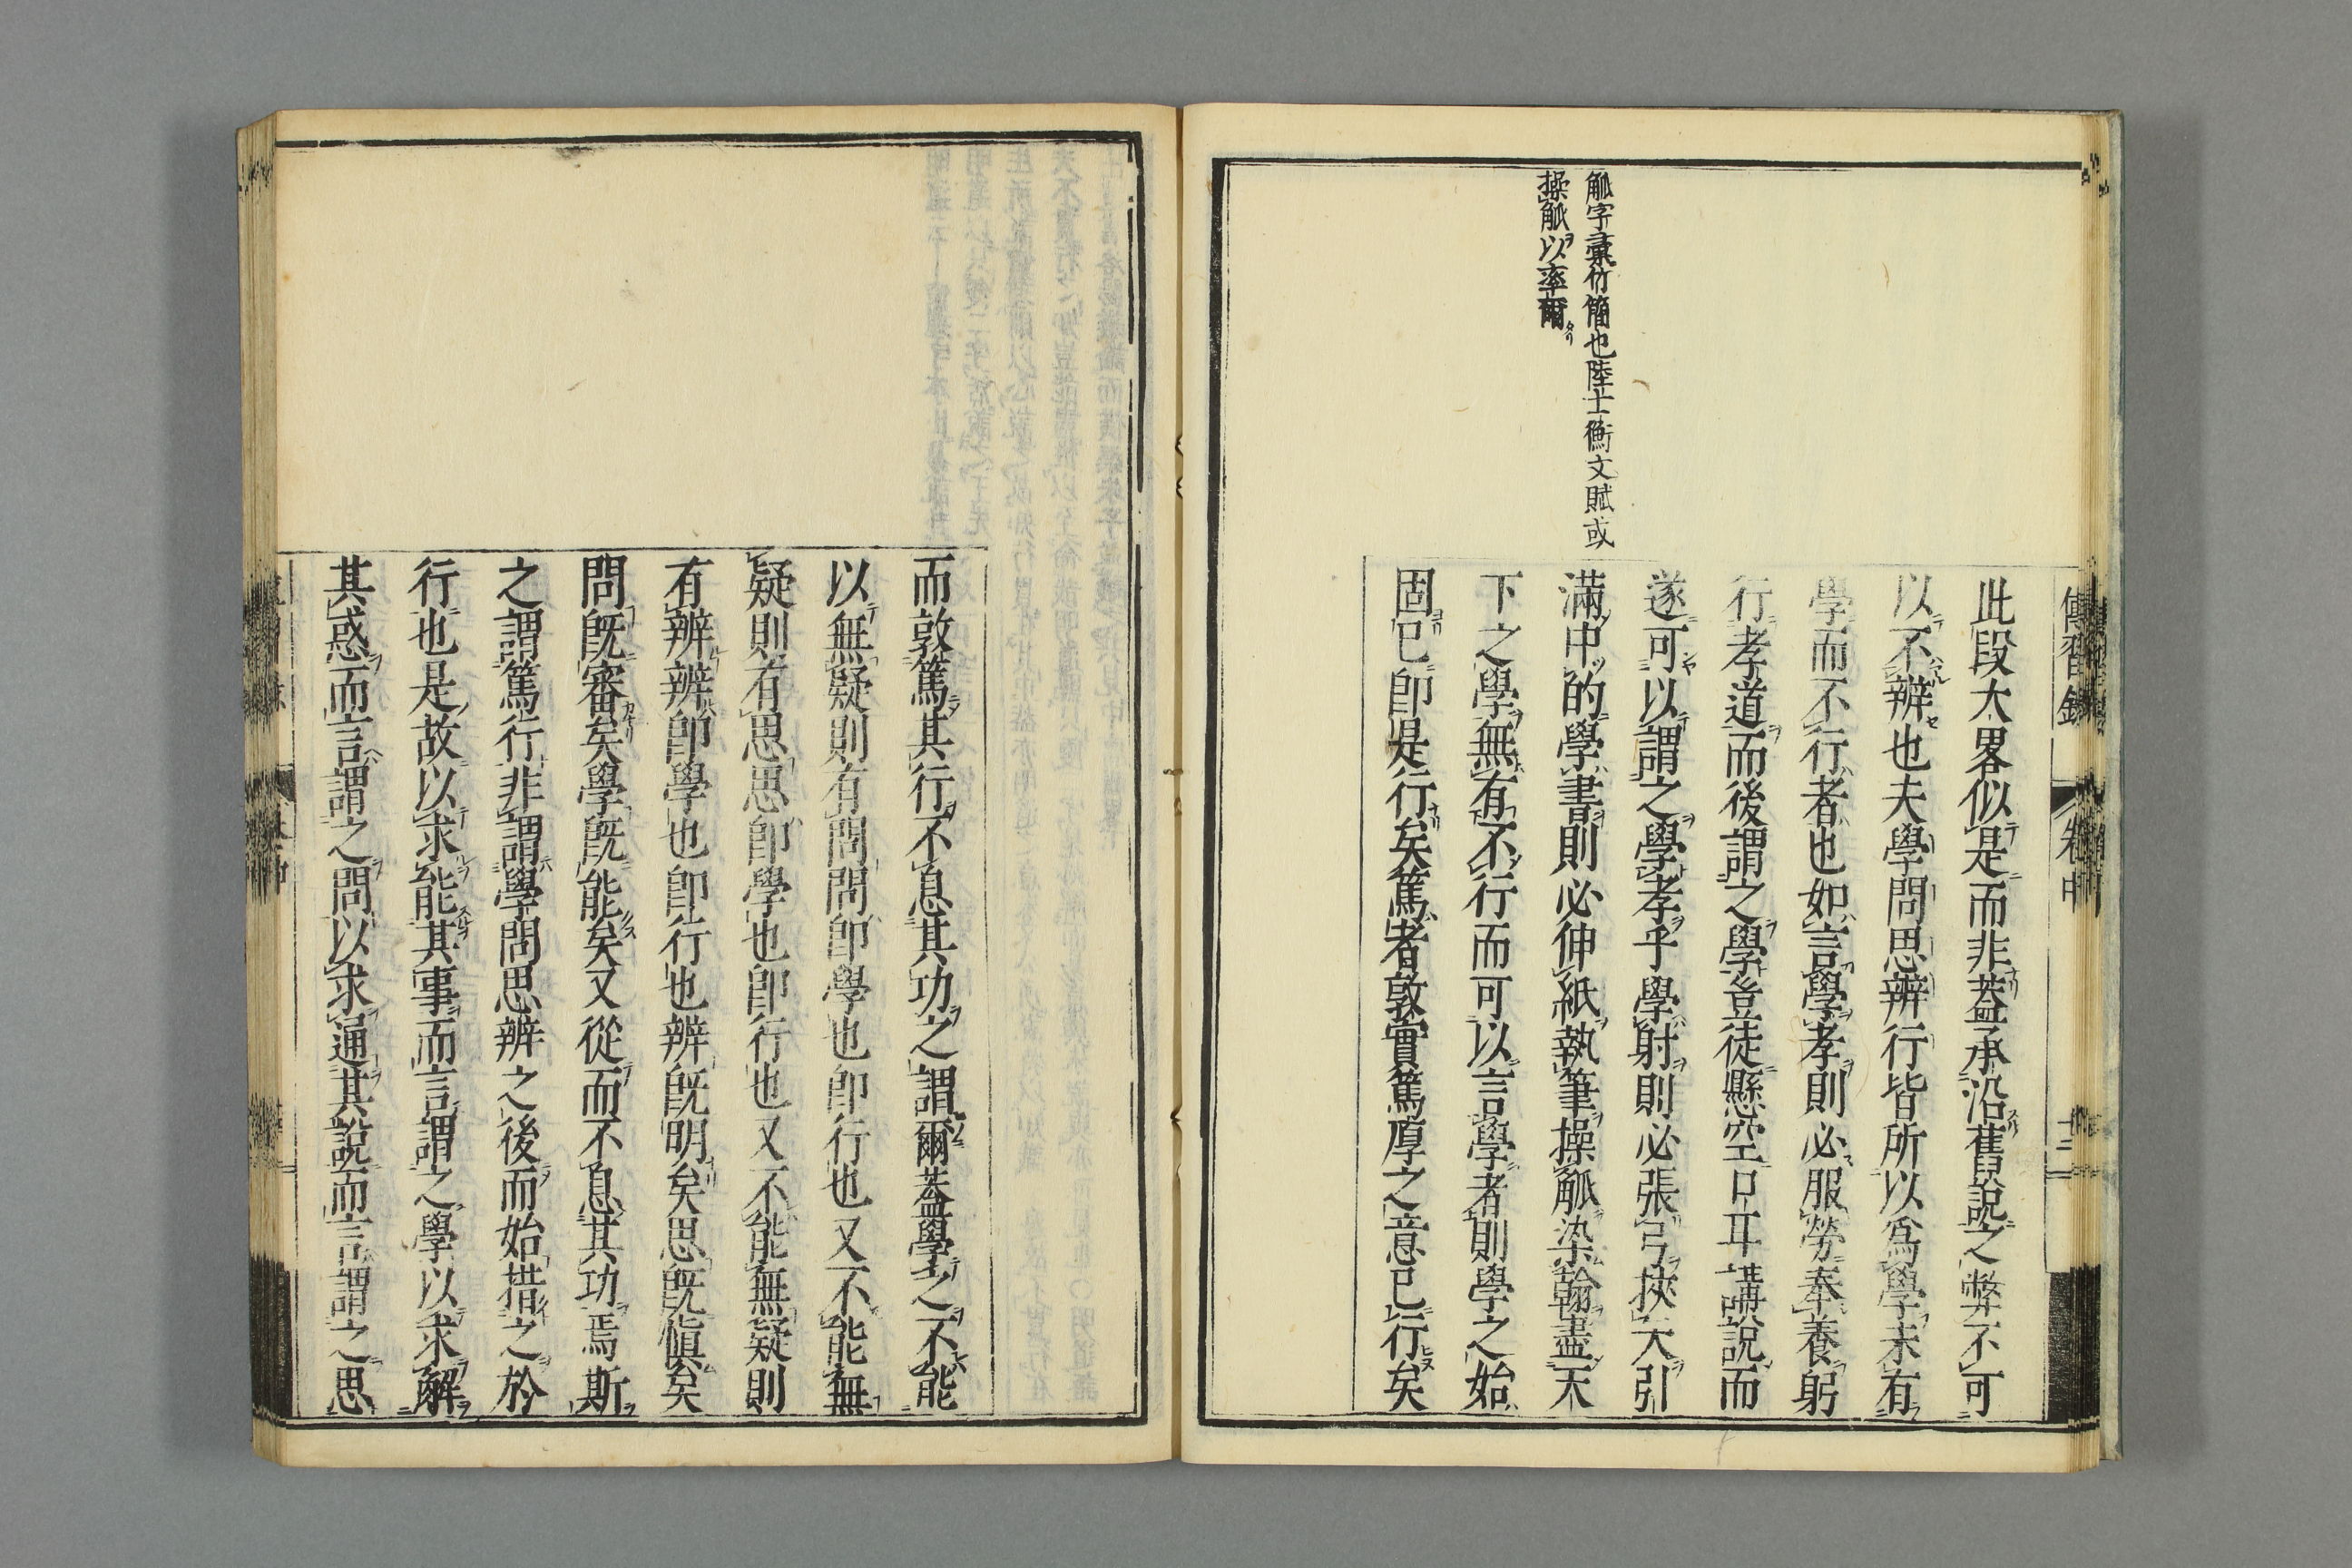 傳習錄
卷中
十二
觚字彙竹簡也陸士衡文賦或
操觚以率爾
此段大畧似是而非蓋承沿舊說之弊不可
以不辨也夫學問思辨行皆所以爲學未有
學而不行者也如言學孝則必服勞奉養躬
行孝道而後謂之學豈徒懸空口耳講說而
遂可以謂之學孝乎學射則必張弓挾矢引
滿中的學書則必伸紙執筆操觚染翰盡天
下之學無有不行而可以言學者則學之始
固已卽是行矣篤者敦實篤厚之意已行矣
而敦篤其行不息其功之謂爾蓋學之不能
以無疑則有問問卽學也卽行也又不能無
疑則有思思卽學也卽行也又不能無疑則
有辨辨卽學也卽行也辨旣明矣思旣愼矣
問旣審矣學旣能矣又從而不息其功焉斯
之謂篤行非謂學問思辨之後而始措之於
行也是故以求能其事而言謂之學以求解
其惑而言謂之問以求通其說而言謂之思